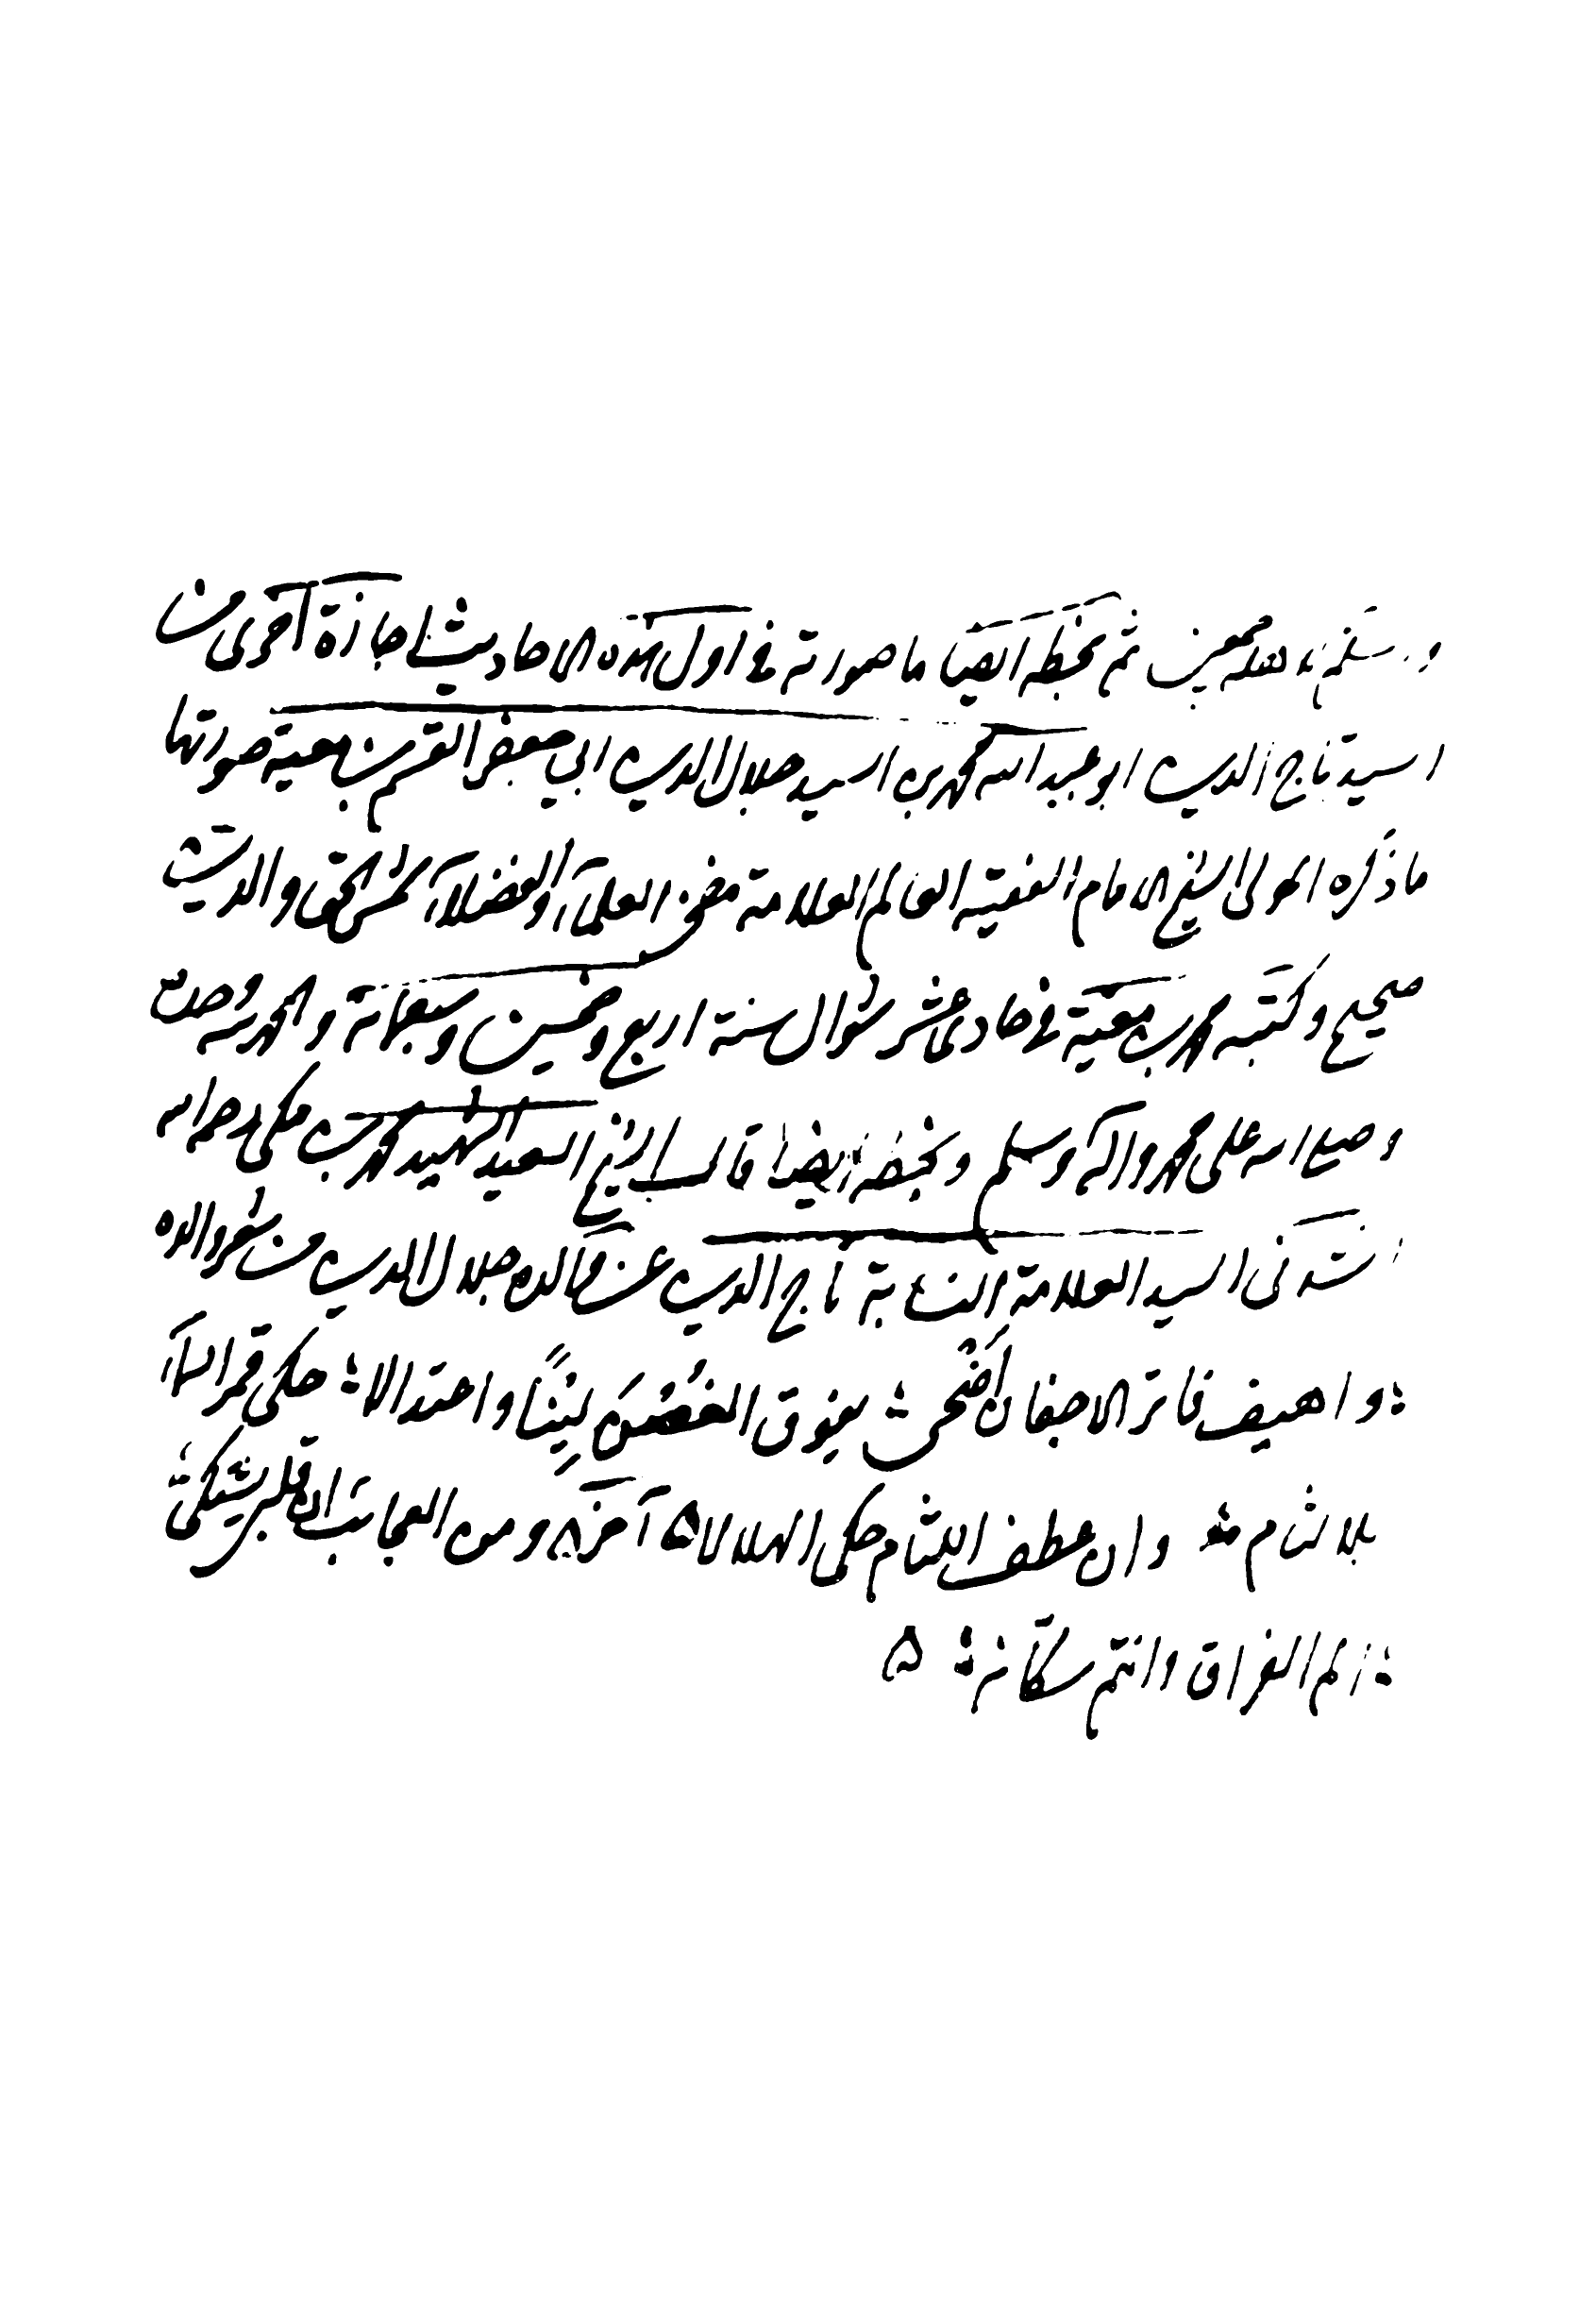 ثم بخطه ايضا ما صورته في اول هذه الاحاديث اجازة اخرى من
السيد تاج الدين ابو عبد الله محمد بن السيد جلال الدين ابي جعفر القسم بن معية صورتها
ما ذكره المولى الشيخ الامام الفقيه العالم العلامة مفخر العلمآء والفضلآء شمس الحق والدين
صحيح وكتبه محمد بن معية في حادى عشر شوال سنة اربع وخمسين وسبعمائة والحمد لله وحده
وصلى الله على محمد وآله وسلم وبخطه ايضا قال الشيخ السعيد الشهيد محمد بن مكى رحمه الله
انشدنى السيد العلامة النسابة تاج الدين عن والده جلال الدين من شعر والده
واهيف فاتر الاجفان اضحى يفوق الغصن لينًا واعتدالا حكى قمر السمآء
بلا لثام وان عطف اللثام حكى الهلالا ه آخر ه ومن العجائب ان قلبى يشتكى
الم الفراق وانتم سكّانه ه